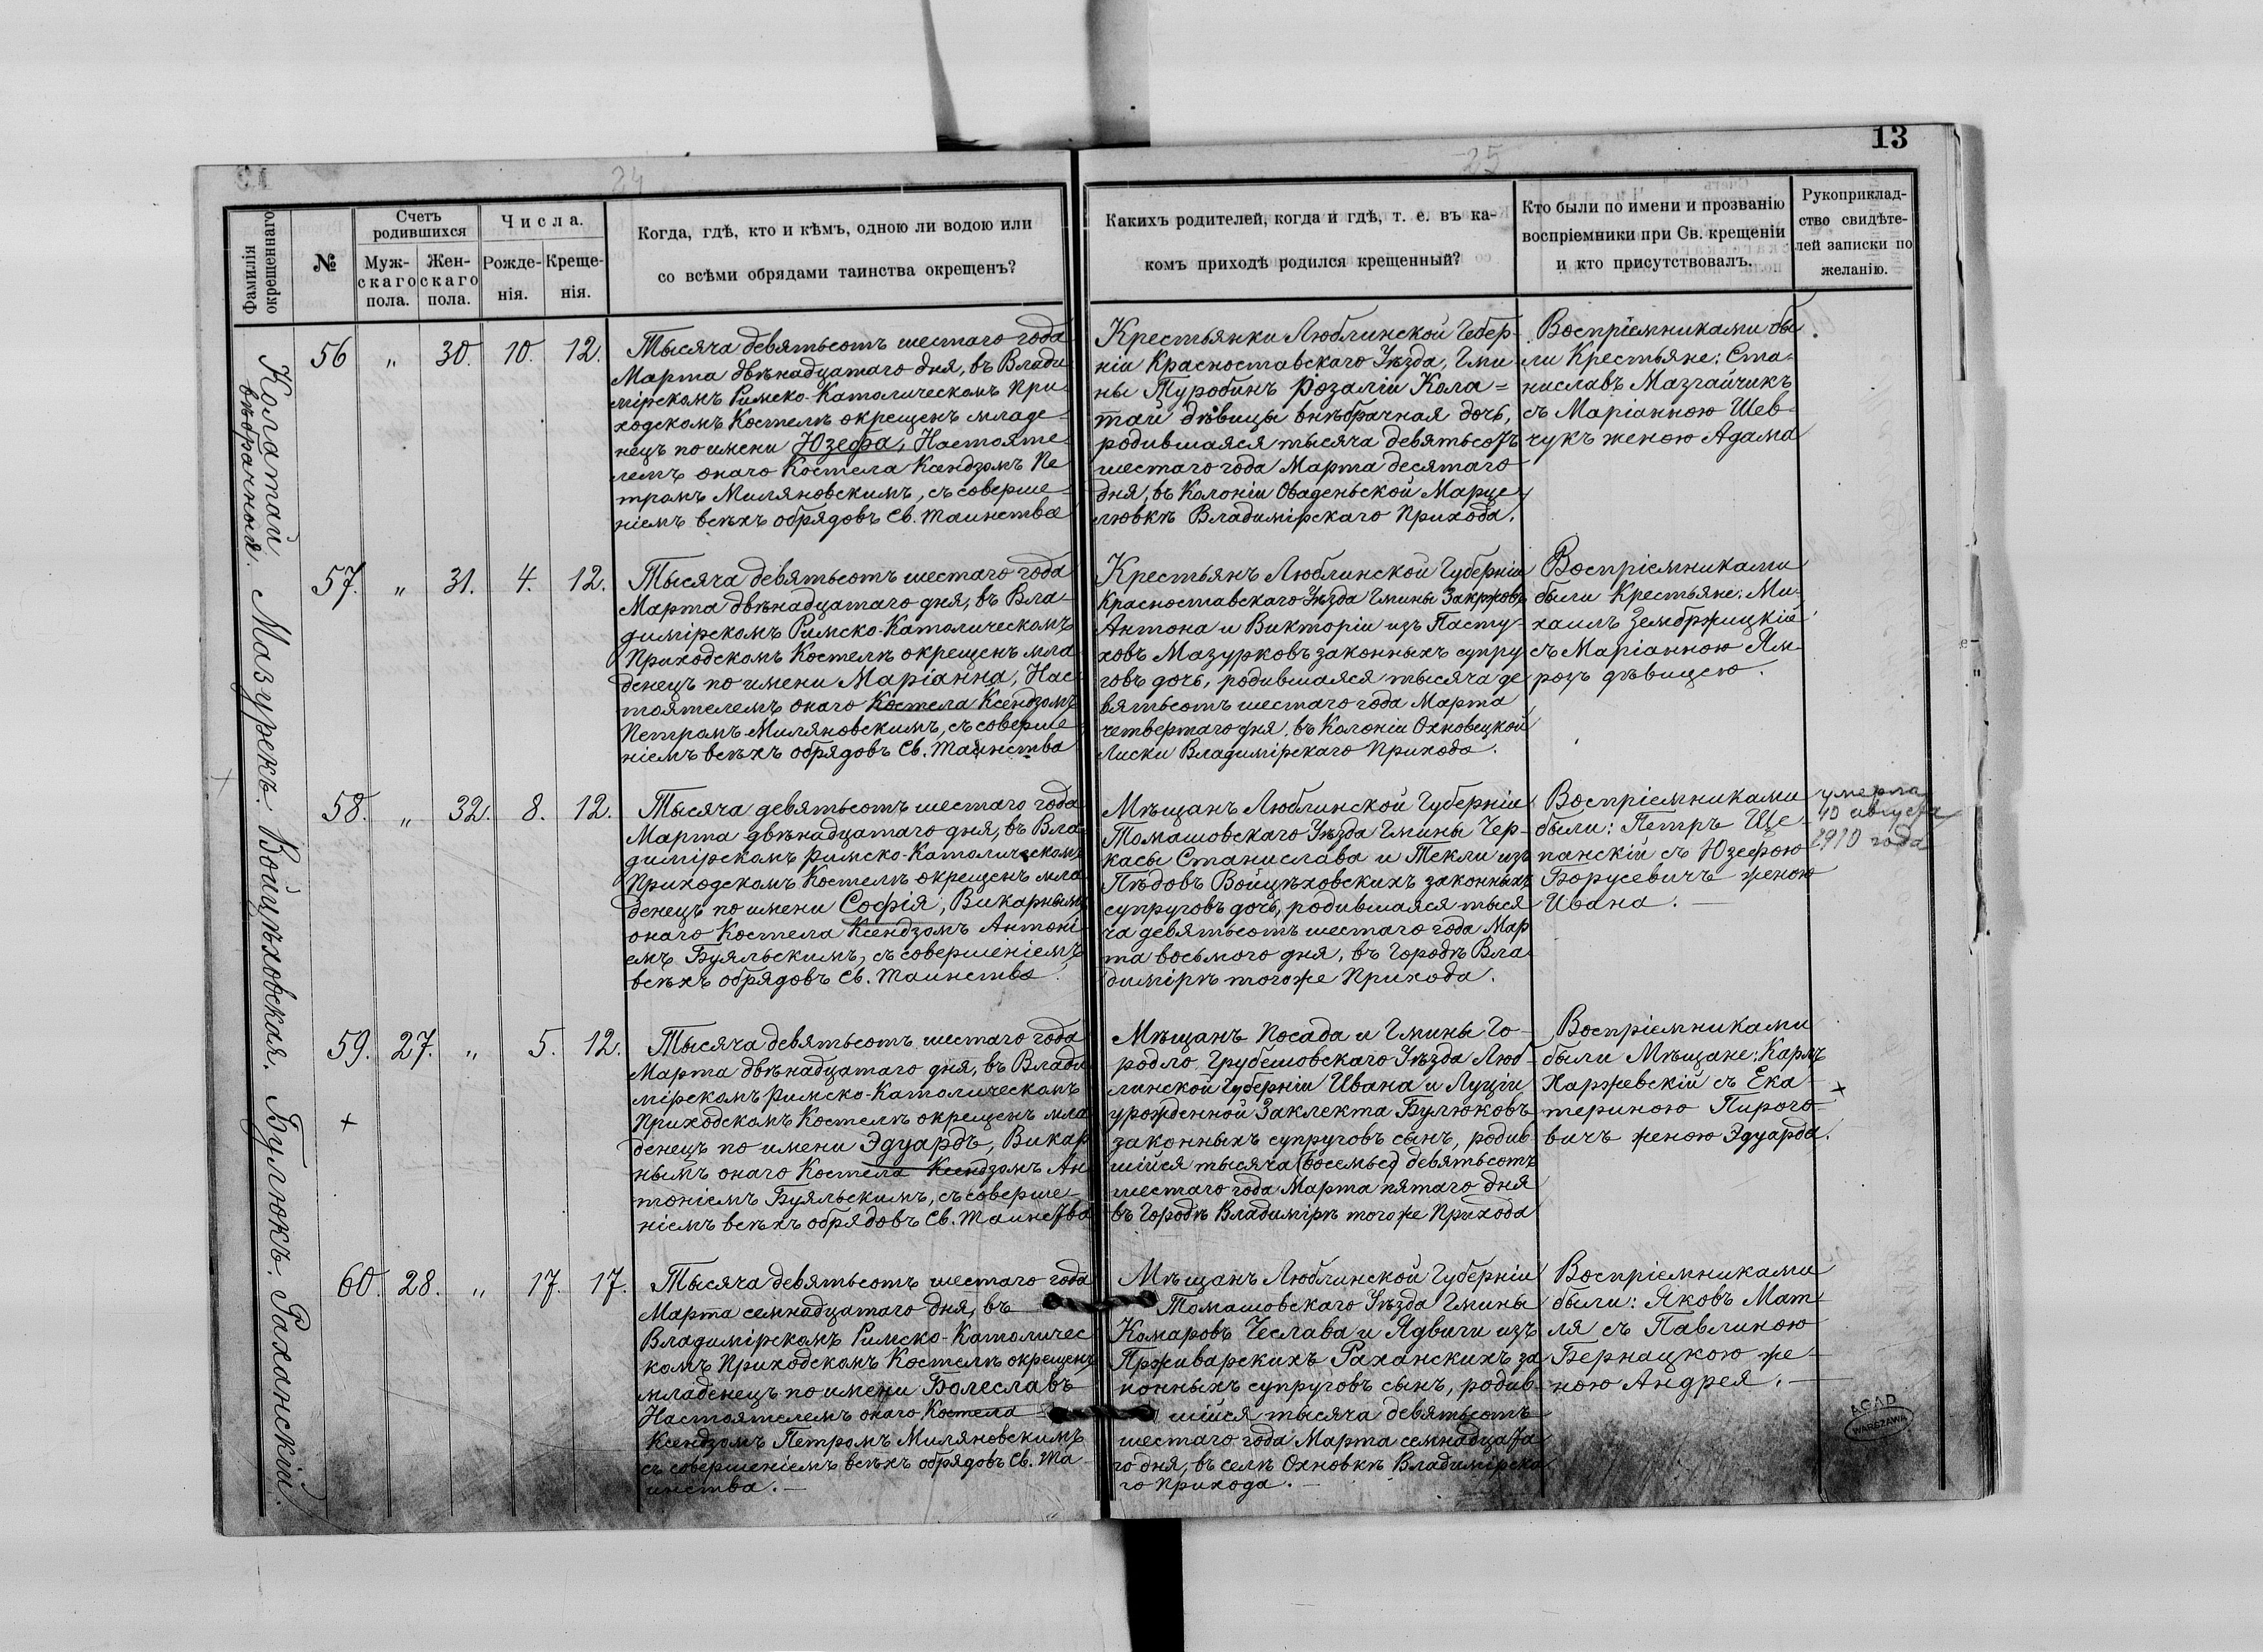 13
24
25
Фамилія окрещеннаго
№
Счетъ родившихся
Мужскаго пола.
Женскаго пола.
Числа.
Рожденія.
Крещенія.
Когда, гдѣ, кто и кѣмъ, одною ли водою или
со всѣми обрядами таинства окрещенъ?
Какихъ родителей, когда и гдѣ, т. е. въ ка-
комъ приходѣ родился крещенный?
Кто были по имени и прозванію
воспріемники при Св. крещеніи
и кто присутствовалъ.
Рукоприклад-
ство свидѣте-
лей записки по
желанію.
Колатай
внѣбрачная.
56 „ 30. 10. 12.
Тысяча девятьсотъ шестаго года
Марта двѣнадцатаго дня, въ Влади
мірскомъ Римско-Католическомъ При
ходскомъ Костелѣ окрещенъ младе-
нецъ по имени Юзефа, Настояте-
лемъ онаго Костела Ксендзомъ Пе
тромъ Миляновскимъ, съ соверше-
ніемъ всѣхъ обрядовъ Св. таинства
Крестьянки Люблинской Губер-
ніи Красноставскаго Уѣзда, Гми
ны Туробинъ Розаліи Кола=
тай дѣвицы внѣбрачная дочь,
родившаяся тысяча девятьсотъ
шестаго года Марта десятаго
дня, въ Колоніи Оваденьской Марце
лювкѣ Владимірскаго Прихода.
Воспріемниками бы
ли Крестьяне: Ста-
ниславъ Мазгайчикъ
съ Маріанною Шев-
чукъ женою Адама
Мазурекъ.
57. „ 31. 4. 12.
Тысяча девятьсотъ шестаго года
Марта двѣнадцатаго дня, въ Вла-
димірскомъ Римско-Католическомъ
Приходскомъ Костелѣ окрещенъ мла
денецъ по имени Маріанна, Нас
тоятелемъ онаго Костела Ксендзомъ
Петромъ Миляновскимъ, съ соверше
ніемъ всѣхъ обрядовъ Св. Таинства
Крестьянъ Люблинской Губерніи
Красноставскаго Уѣзда Гмины Закржовъ
Антона и Викторіи изъ Пасту-
ховъ Мазурковъ законныхъ супру
говъ дочь, родившаяся тысяча де
вятьсотъ шестаго года Марта
четвертаго дня, въ Колоніи Охновецкой
Лиски Владимірскаго Прихода.
Воспріемниками
были Крестьяне: Ми-
хаилъ Зембржицкій
съ Маріанною Ям-
розъ дѣвицею.
Войцѣховская.
58. „ 32. 8. 12.
Тысяча девятьсотъ шестаго года
Марта двѣнадцатаго дня, въ Вла
димірскомъ Римско-Католическомъ
Приходскомъ Костелѣ окрещенъ мла
денецъ по имени Софія, Викарнымъ
онаго Костела Ксендзомъ Антоні
емъ Буяльскимъ, съ совершеніемъ
всѣхъ обрядовъ Св. таинства.
Мѣщанъ Люблинской Губерніи
Томашовскаго Уѣзда Гмины Чер-
касы Станислава и Текли изъ
Пѣдовъ Войцѣховскихъ законныхъ
супруговъ дочь, родившаяся тыся
ча девятьсотъ шестаго года Мар
та восьмого дня, въ Городѣ Вла
димірѣ тогоже Прихода.
Воспріемниками
были: Петръ Ще-
панскій съ Юзефою
Борусевичъ женою
Ивана.
умерла
10 августа
1910 года
Булюкъ.
59. 27. „ 5. 12.
Тысяча девятьсотъ шестаго года
Марта двѣнадцатаго дня, въ Влади
мірскомъ Римско-Католическомъ
Приходскомъ Костелѣ окрещенъ мла
денецъ по имени Эдуардъ, Викар
нымъ онаго Костела Ксендзомъ Ан
тоніемъ Буяльскимъ, съ соверше-
ніемъ всѣхъ обрядовъ Св. таинства
Мѣщанъ Посада и Гмины Го-
родло Грубешовскаго Уѣзда Люб-
линской Губерніи Ивана и Луціи
урожденной Заклекта Булюковъ
законныхъ супруговъ сынъ, родив
шійся тысяча (восемьс) девятьсотъ
шестаго года Марта пятаго дня
въ Городѣ Владимірѣ тогоже Прихода
Воспріемниками
были Мѣщане: Карлъ
Харжевскій съ Ека-
териною Пирого-
вичъ женою Эдуарда.
Раханскій.
60. 28. „ 17. 17.
Тысяча девятьсотъ шестаго года
Марта семнадцатаго дня, въ
Владимірскомъ Римско-Католичес
комъ Приходскомъ Костелѣ окрещенъ
младенецъ по имени Болеславъ
Настоятелемъ онаго Костела
Ксендзомъ Петромъ Миляновскимъ
съ совершеніемъ всѣхъ обрядовъ Св. Та
инства.
Мѣщанъ Люблинской Губерніи
Томашовскаго Уѣзда Гмины
Комаровъ Чеслава и Ядвиги изъ
Прживарскихъ Раханскихъ за
конныхъ супруговъ сынъ, родив-
шійся тысяча девятьсотъ
шестаго года Марта семнадцата
го дня, въ селѣ Охновкѣ Владимірска
го Прихода.
Воспріемниками
были: Яковъ Мат
ля съ Павлиною
Бернацкою же-
ною Андрея.
AGAD
WARSZAWA